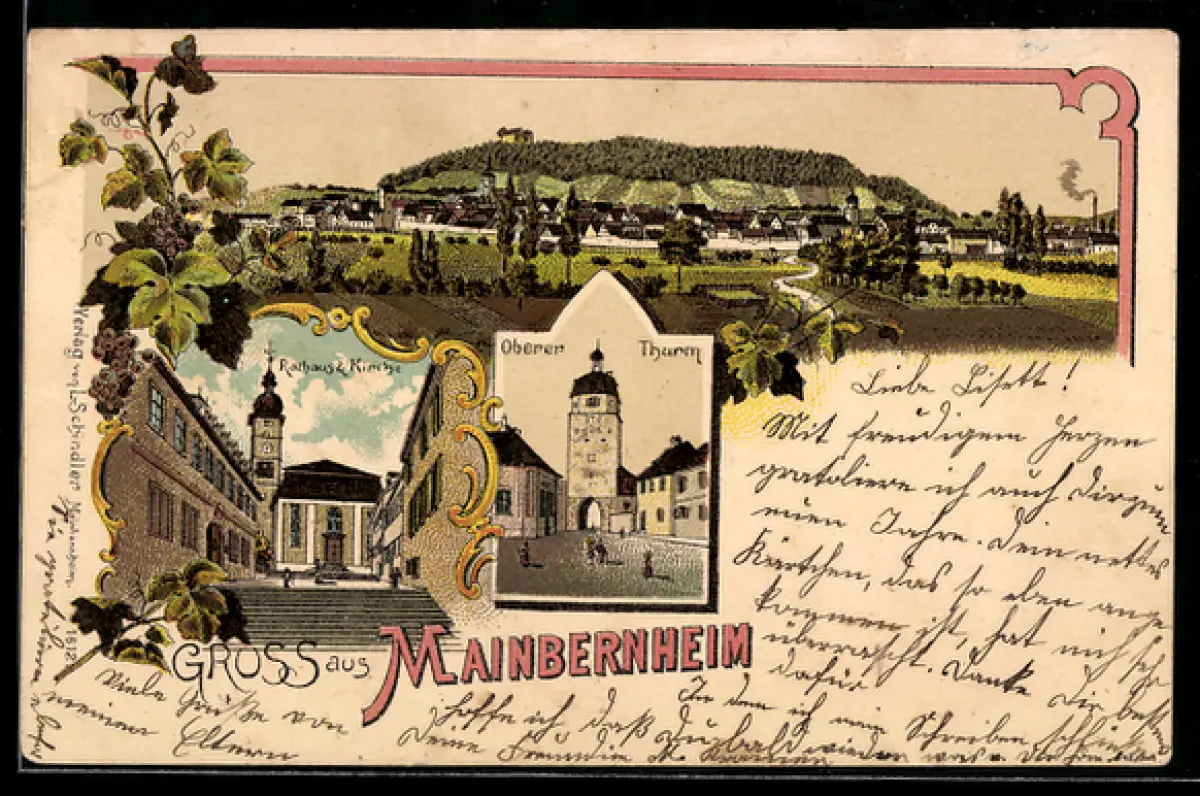 Rathaus & Kirche
Oberer Thurm
Verlag von L. Schindler, Mainbernheim.
GRUSS aus MAINBERNHEIM
Liebe Lisett!
Mit freudigem Herzen
gratoliere ich auch Dir zum
neuen Jahre. Dein nettes
Kärtchen, das so eben ange
kommen ist, hat mich sehr
überrascht. Danke Dir bestens
dafür
In dem ich mein Schreiben schließe
hoffe ich daß Du bald wieder
Deine Freundin
Viele Grüße von
meinen Eltern